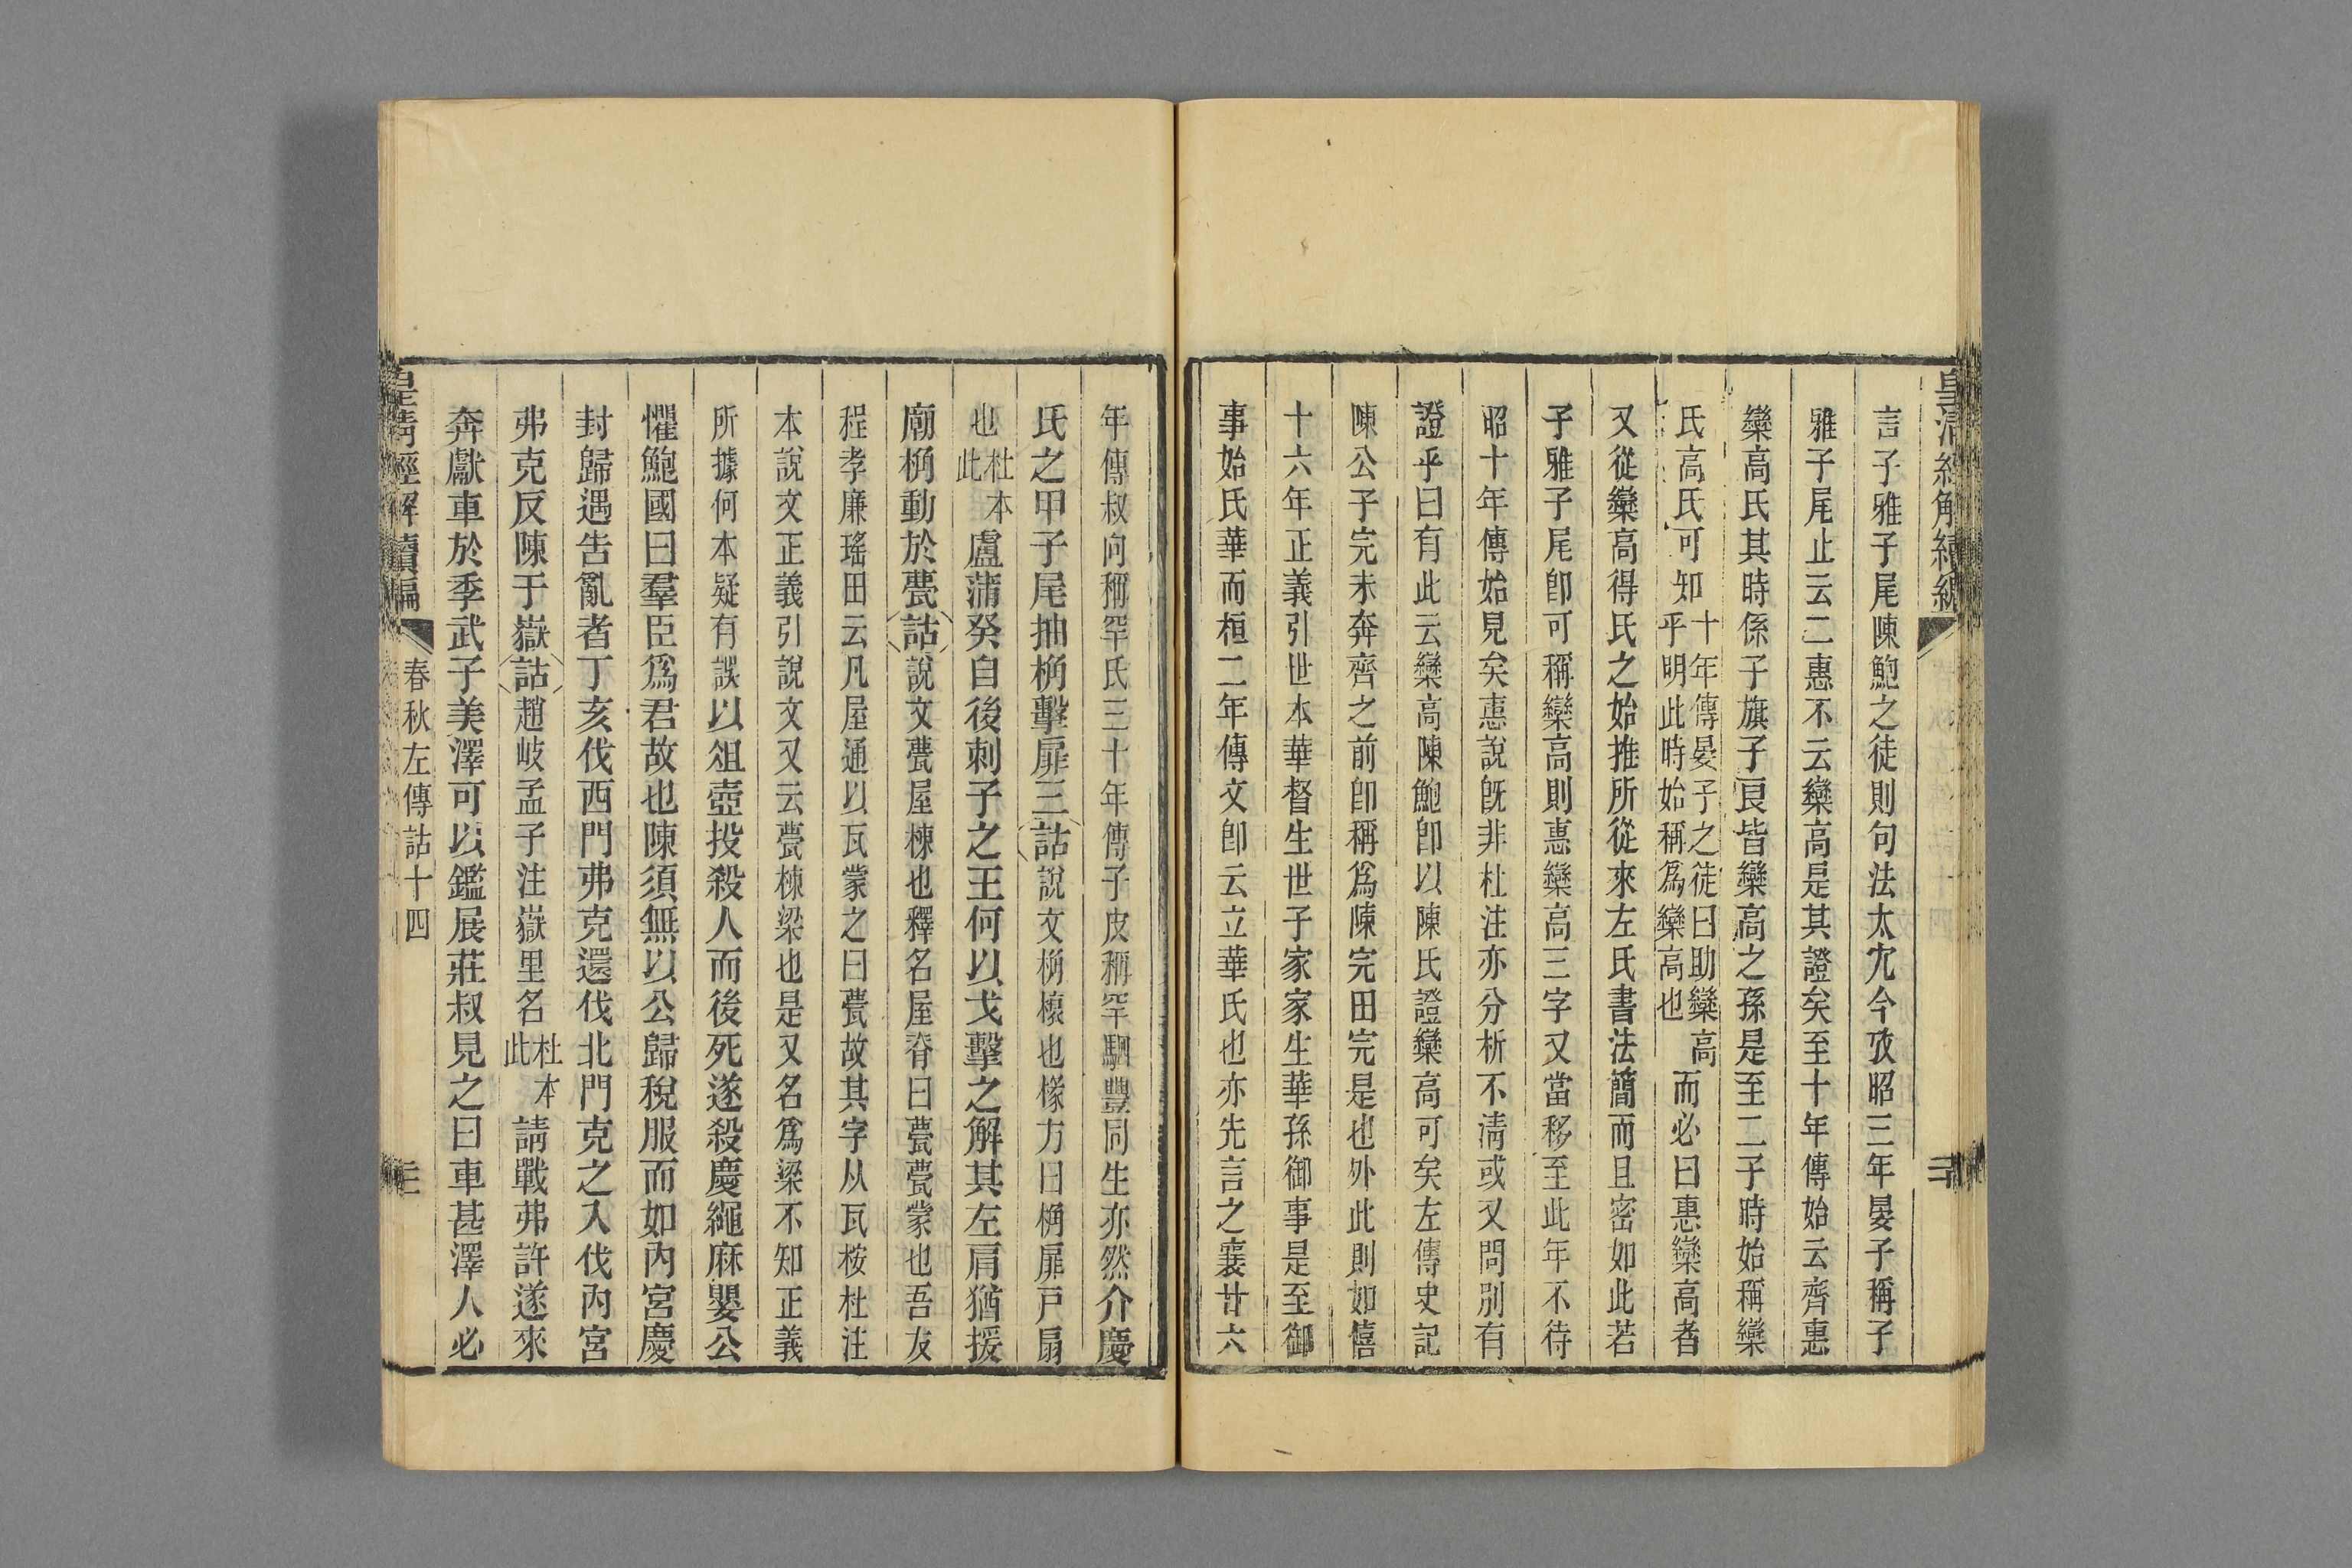 皇清經解續編
二十
言子雅子尾陳鮑之徒則句法太宂今攷昭三年晏子稱子
雅子尾止云二惠不云欒高是其證矣至十年傳始云齊惠
欒高氏其時係子旗子良皆欒高之孫是至二子時始稱欒
氏高氏可知十年傳晏子之徒曰助欒高乎明此時始稱爲欒高也而必曰惠欒高者
又從欒高得氏之始推所從來左氏書法簡而且密如此若
子雅子尾卽可稱欒高則惠欒高三字又當移至此年不待
昭十年傳始見矣惠說旣非杜注亦分析不淸或又問別有
證乎曰有此云欒高陳鮑卽以陳氏證欒高可矣左傳史記
陳公子完未奔齊之前卽稱爲陳完田完是也外此則如僖
十六年正義引世本華督生世子家家生華孫御事是至御
事始氏華而桓二年傳文卽云立華氏也亦先言之襄廿六
年傳叔向稱罕氏三十年傳子皮稱罕駟豐同生亦然介慶
氏之甲子尾抽桷擊扉三詁說文桷榱也椽方曰桷扉戸扇
也杜本此盧蒲癸自後刺子之王何以戈擊之解其左肩猶援
廟桷動於甍詁說文甍屋棟也釋名屋脊曰甍甍蒙也吾友
程孝廉瑤田云凡屋通以瓦蒙之曰甍故其字从瓦桉杜注
本說文正義引說文又云甍棟梁也是又名爲梁不知正義
所據何本疑有誤以俎壺投殺人而後死遂殺慶繩麻嬰公
懼鮑國曰羣臣爲君故也陳須無以公歸稅服而如內宮慶
封歸遇吿亂者丁亥伐西門弗克還伐北門克之入伐內宮
弗克反陳于嶽詁趙岐孟子注嶽里名杜本此請戰弗許遂來
奔獻車於季武子美澤可以鑑展莊叔見之曰車甚澤人必
皇清經解續編
春秋左傳詁十四